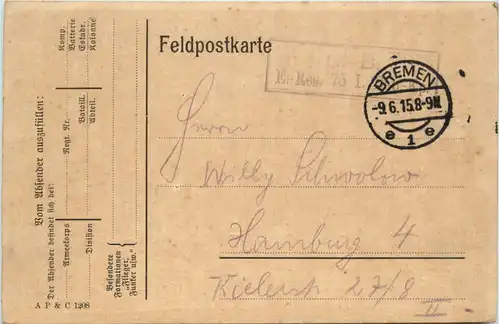 Feldpostkarte
BREMEN
-9.6.15.8-9N.
e 1 e
Herrn
Willy Schwolow
Hamburg 4
Kielerst 27/8
II
Vom Absender auszufüllen:
Der Absender befindet sich bei:
Armeekorps
Division
Regt. Nr.
Bataill.
Abteil.
Komp.
Batterie
Eskadr.
Kolonne
Besondere
Formationen
"Flieger,
Funker usw."
A P & C 1208